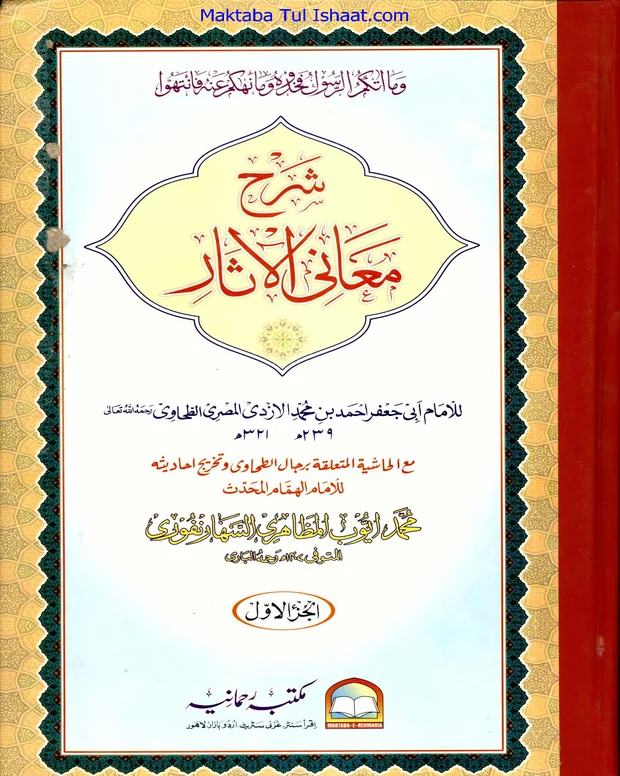 Maktaba Tul Ishaat.com
وما اٰتكم الرسول فخذوه وما نهكم عنه فانتهوا
شرح
معانی الاثار
للامام ابی جعفر احمد بن محمد الازدی المصری الطحاوی رحمه الله تعالى
۲۳۹ھ ۳۲۱ھ
مع الحاشیة المتعلقة برجال الطحاوی وتخریج احادیثه
للامام الهمام المحدث
محمد ایوب المظاهری السهارنفوری
المتوفی ۱۴۰۷ھ رحمه الباری
الجزء الاوّل
مکتبہ رحمانیہ
اقرأ سنٹر غزنی سٹریٹ اردو بازار لاہور
MAKTABA-E-REHMANIA